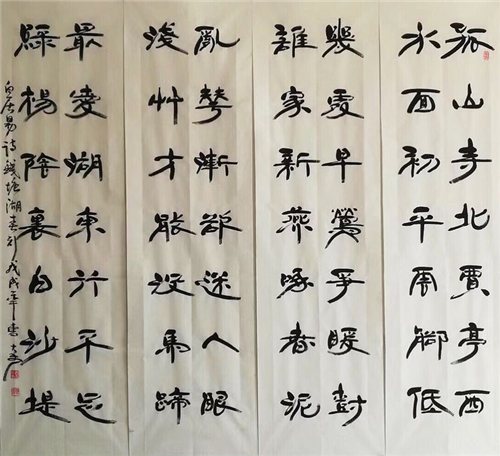 孤山寺北賈亭西
水面初平雲脚低
幾處早鶯爭暖尌
誰家新燕啄春泥
亂華漸欲迷人眼
淺艸才能没馬蹄
最愛湖東行不足
綠楊陰裏白沙堤
白居易詩錢塘湖春行戊戌年